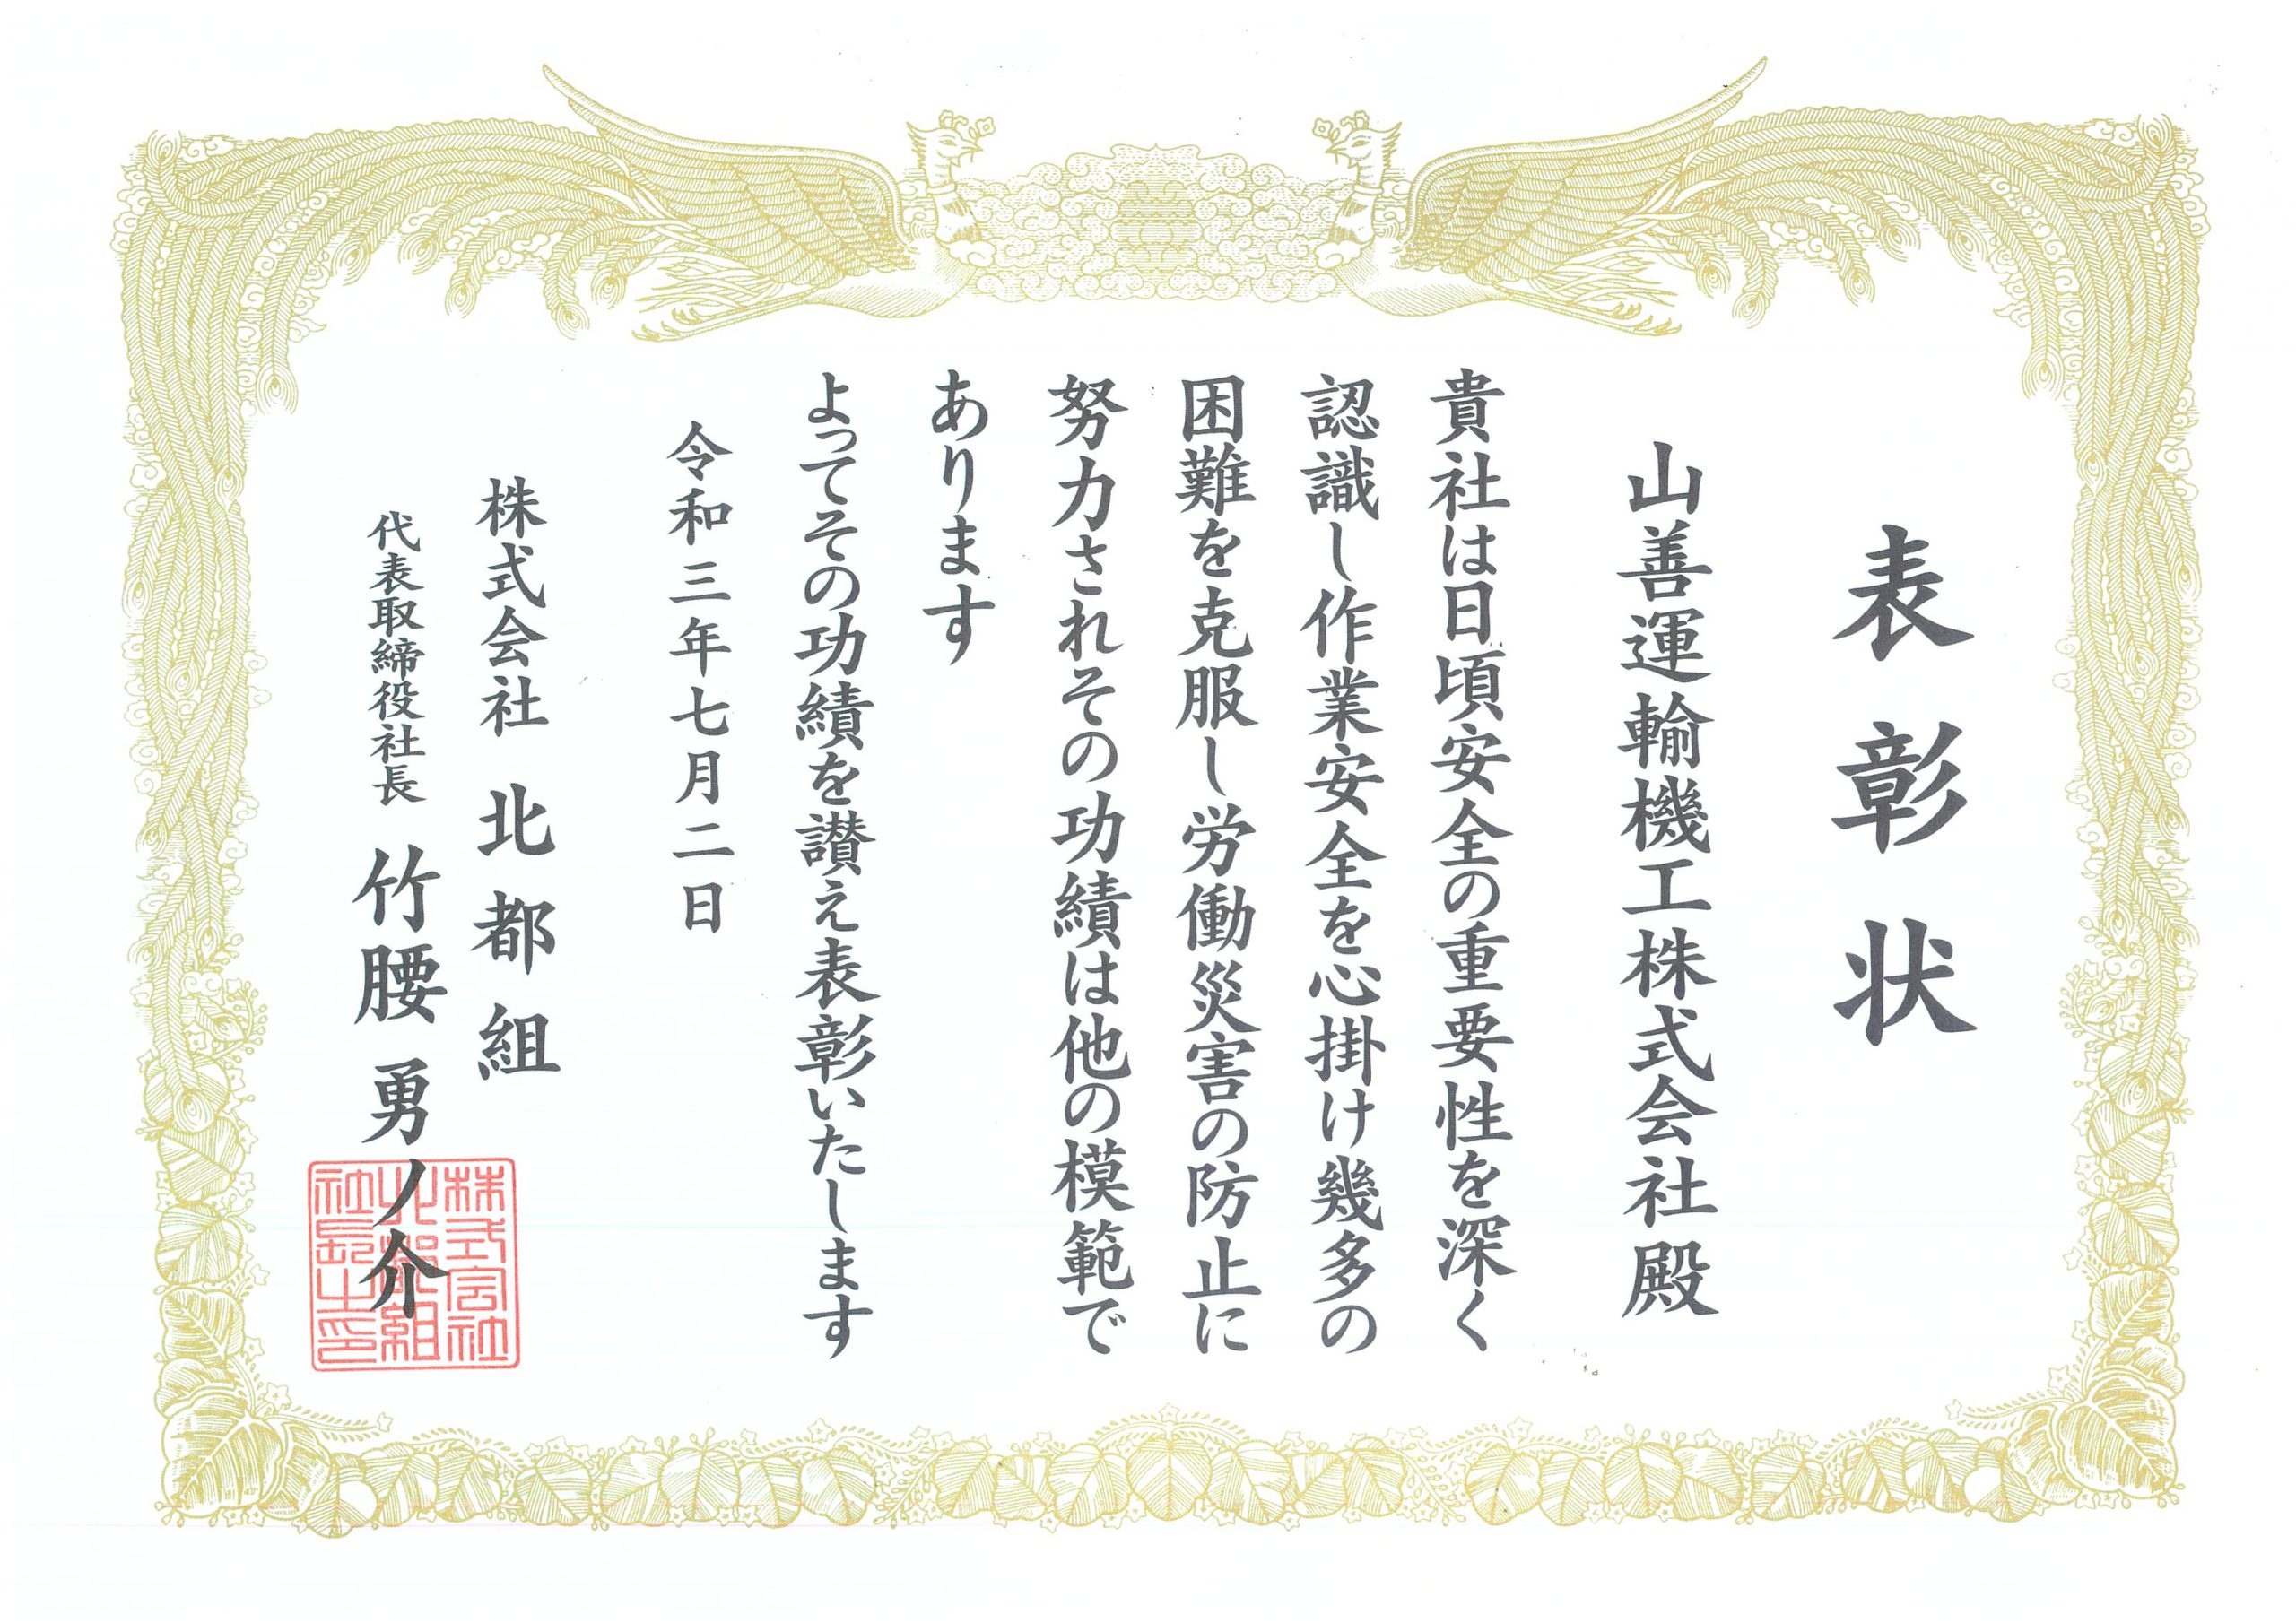 表彰状
山善運輸機工株式会社殿
貴社は日頃安全の重要性を深く
認識し作業安全を心掛け幾多の
困難を克服し労働災害の防止に
努力されその功績は他の模範で
あります
よってその功績を讃え表彰いたします
令和三年七月二日
株式会社 北都組
代表取締役社長 竹腰 勇ノ介
株式会社
北都組
社長之印